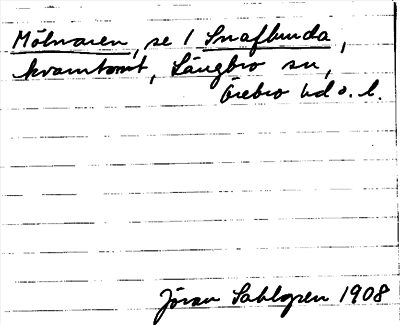 Mölnaren, se 1 Snaflunda,
kvarntomt, Längbro sn,
Örebro hd o. l.
Jöran Sahlgren 1908